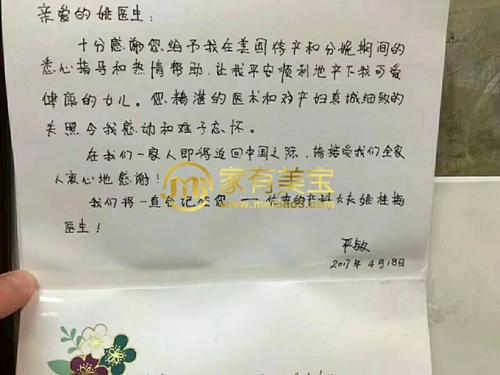 亲爱的姚医生:
十分感谢您给予我在美国待产和分娩期间的
悉心指导和热情帮助,让我平安顺利地产下我可爱
健康的女儿。您精湛的医术和对产妇真诚细致的
关照令我感动和难于忘怀。
在我们一家人即将返回中国之际,请接受我们全家
人衷心地感谢!
家有美宝
我们将一直会记住您——优秀的产科大夫姚桂梅
医生!
平敏
2017年4月18日